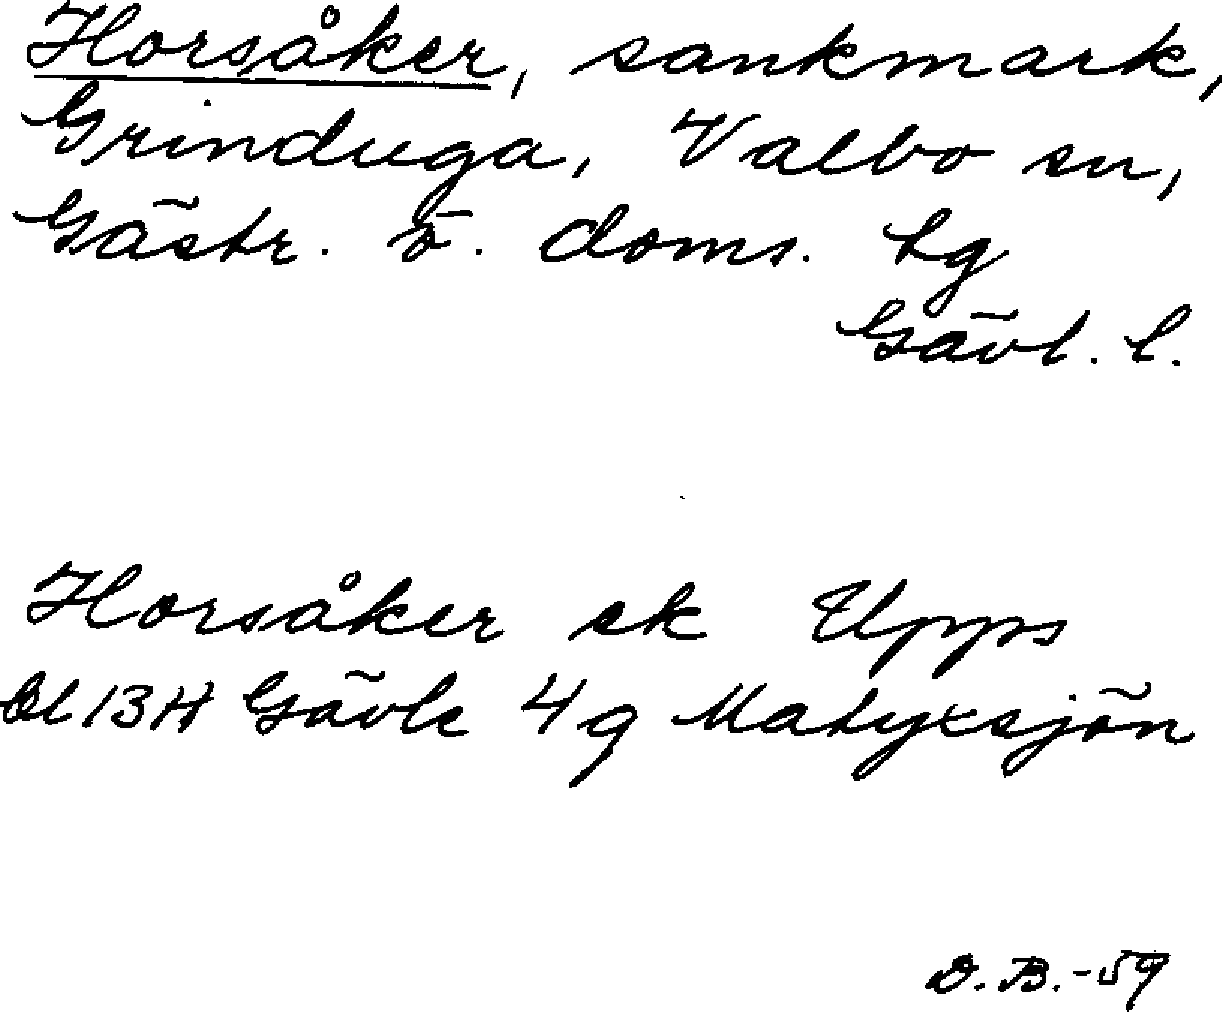 Horsåker, sankmark,
Grinduga, Valbo sn,
Gästr. ö. doms. tg
Gävl. l.
Horsåker ek Upps
Bl 13H Gävle 4g Matyxsjön
D.B.-59